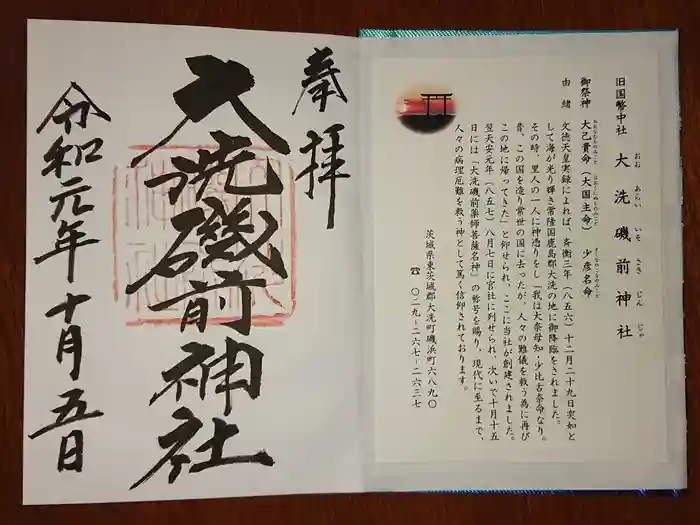 奉拝
大洗磯前神社
令和元年十月五日
旧国幣中社 大洗磯前神社
おお あらい いそ さき じん じゃ
御祭神 大己貴命(大国主命) 少彦名命
由緒 文徳天皇実録によれば、斉衡三年(八五六)十二月二十九日突如と
して海が光り輝き常陸国鹿島郡大洗の地に御降臨をされました。
その時、里人の一人に神憑りをし「我は大奈母知・少比古奈命なり。
昔、この国を造り常世の国に去ったが、人々の難儀を救う為に再び
この地に帰ってきた」と仰せられ、ここに当社が創建されました。
翌天安元年(八五七)八月七日に官社に列せられ、次いで十月十五
日には「大洗磯前薬師菩薩名神」の称号を賜り、現代に至るまで、
人々の病理厄難を救う神として篤く信仰されております。
茨城県東茨城郡大洗町磯浜町六八九〇
☎ 〇二九-二六七-二六三七